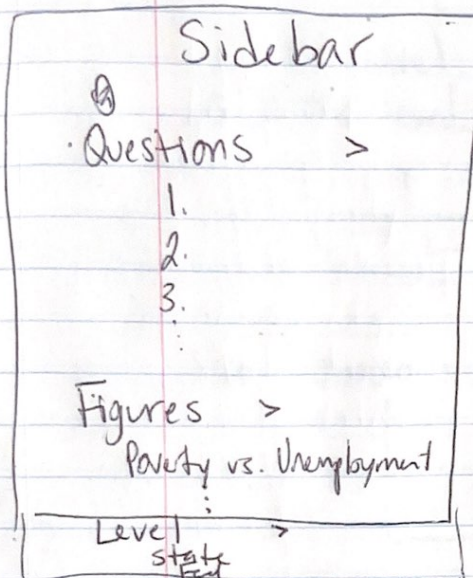 Sidebar
Questions >
1.
2.
3.
⋮
Figures >
Poverty vs. Unemployment
⋮
Level >
State